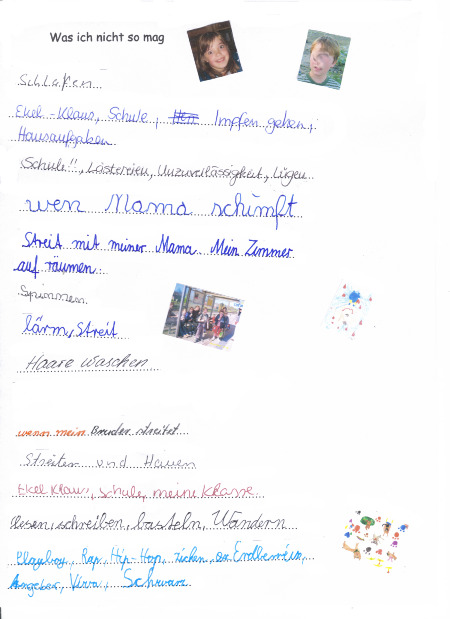 Was ich nicht so mag
Schlafen
Ekel-Klaus, Schule, Impfen gehen,
Hausaufgaben
Schule!!, Lästereien, Unzuverlässigkeit, Lügen
wen Mama schimft
Streit mit meiner Mama. Mein Zimmer
auf räumen.
Spinnen
lärm, Streit
Haare waschen
wenn mein Bruder streitet
Streiten und Hauen
Ekel Klaus, Schule, meine Klasse
lesen, schreiben, basteln, Wandern
Playboy, Rap, Hip-Hop, Zicken,
Angeber, Viva,